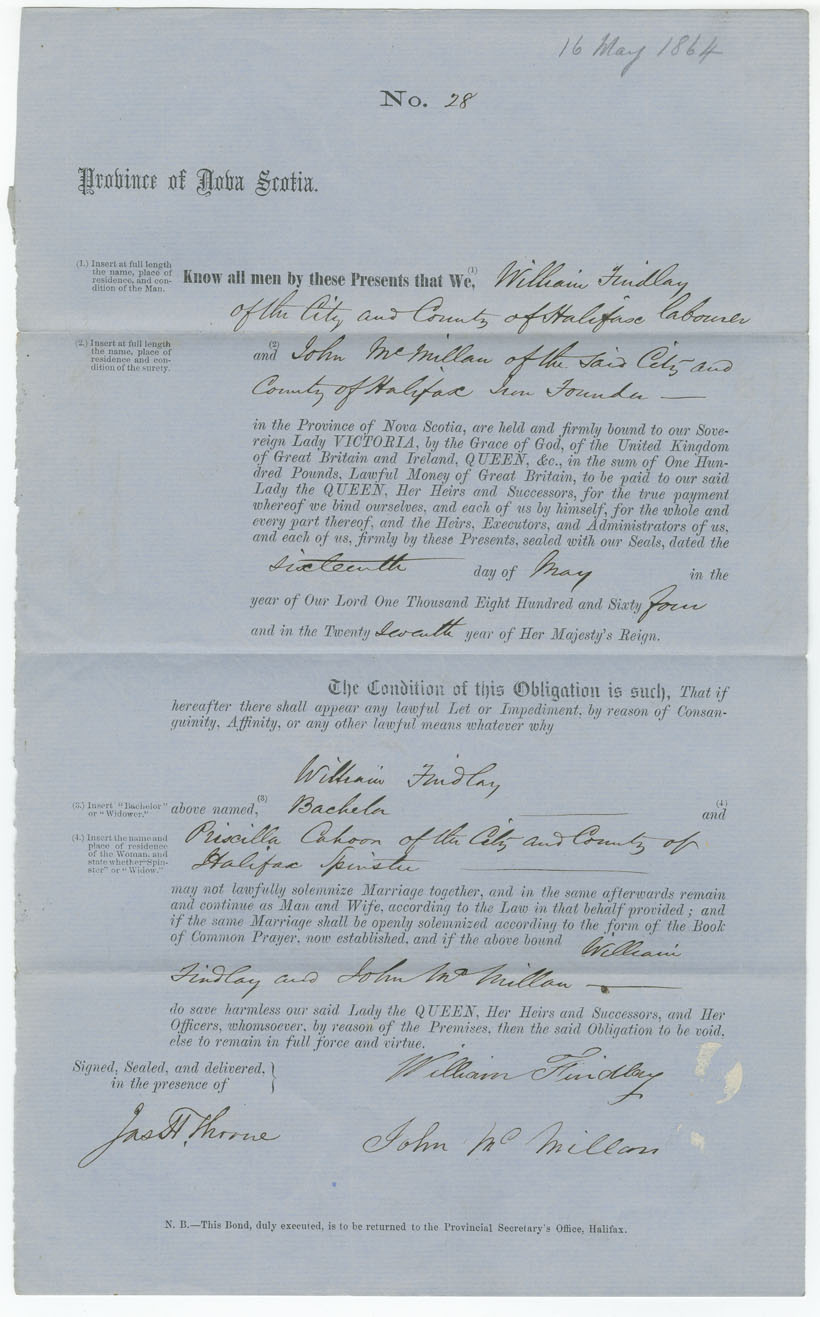 16 May 1864
No. 28
Province of Nova Scotia.
(1.) Insert at full length
the name, place of
residence, and con-
dition of the Man.
Know all men by these Presents that We,(1) William Findlay
of the City and County of Halifax labourer
(2.) Insert at full length
the name, place of
residence and con-
dition of the surety.
and (2) John McMillan of the said City and
County of Halifax Iron Founder —
in the Province of Nova Scotia, are held and firmly bound to our Sove-
reign Lady VICTORIA, by the Grace of God, of the United Kingdom
of Great Britain and Ireland, QUEEN, &c., in the sum of One Hun-
dred Pounds, Lawful Money of Great Britain, to be paid to our said
Lady the QUEEN, Her Heirs and Successors, for the true payment
whereof we bind ourselves, and each of us by himself, for the whole and
every part thereof, and the Heirs, Executors, and Administrators of us,
and each of us, firmly by these Presents, sealed with our Seals, dated the
sixteenth day of May in the
year of Our Lord One Thousand Eight Hundred and Sixty four
and in the Twenty seventh year of Her Majesty's Reign.
The Condition of this Obligation is such, That if
hereafter there shall appear any lawful Let or Impediment, by reason of Consan-
guinity, Affinity, or any other lawful means whatever why
William Findlay
(3.) Insert "Bachelor"
or "Widower."
above named,(3) Bachelor and (4)
(4.) Insert the name and
place of residence
of the Woman, and
state whether "Spin-
ster" or "Widow."
Priscilla Cahoon of the City and County of
Halifax Spinster
may not lawfully solemnize Marriage together, and in the same afterwards remain
and continue as Man and Wife, according to the Law in that behalf provided ; and
if the same Marriage shall be openly solemnized according to the form of the Book
of Common Prayer, now established, and if the above bound William
Findlay and John McMillan —
do save harmless our said Lady the QUEEN, Her Heirs and Successors, and Her
Officers, whomsoever, by reason of the Premises, then the said Obligation to be void,
else to remain in full force and virtue.
Signed, Sealed, and delivered,
in the presence of
William Findlay
Jas H. Thorne
John McMillan
N. B.—This Bond, duly executed, is to be returned to the Provincial Secretary's Office, Halifax.